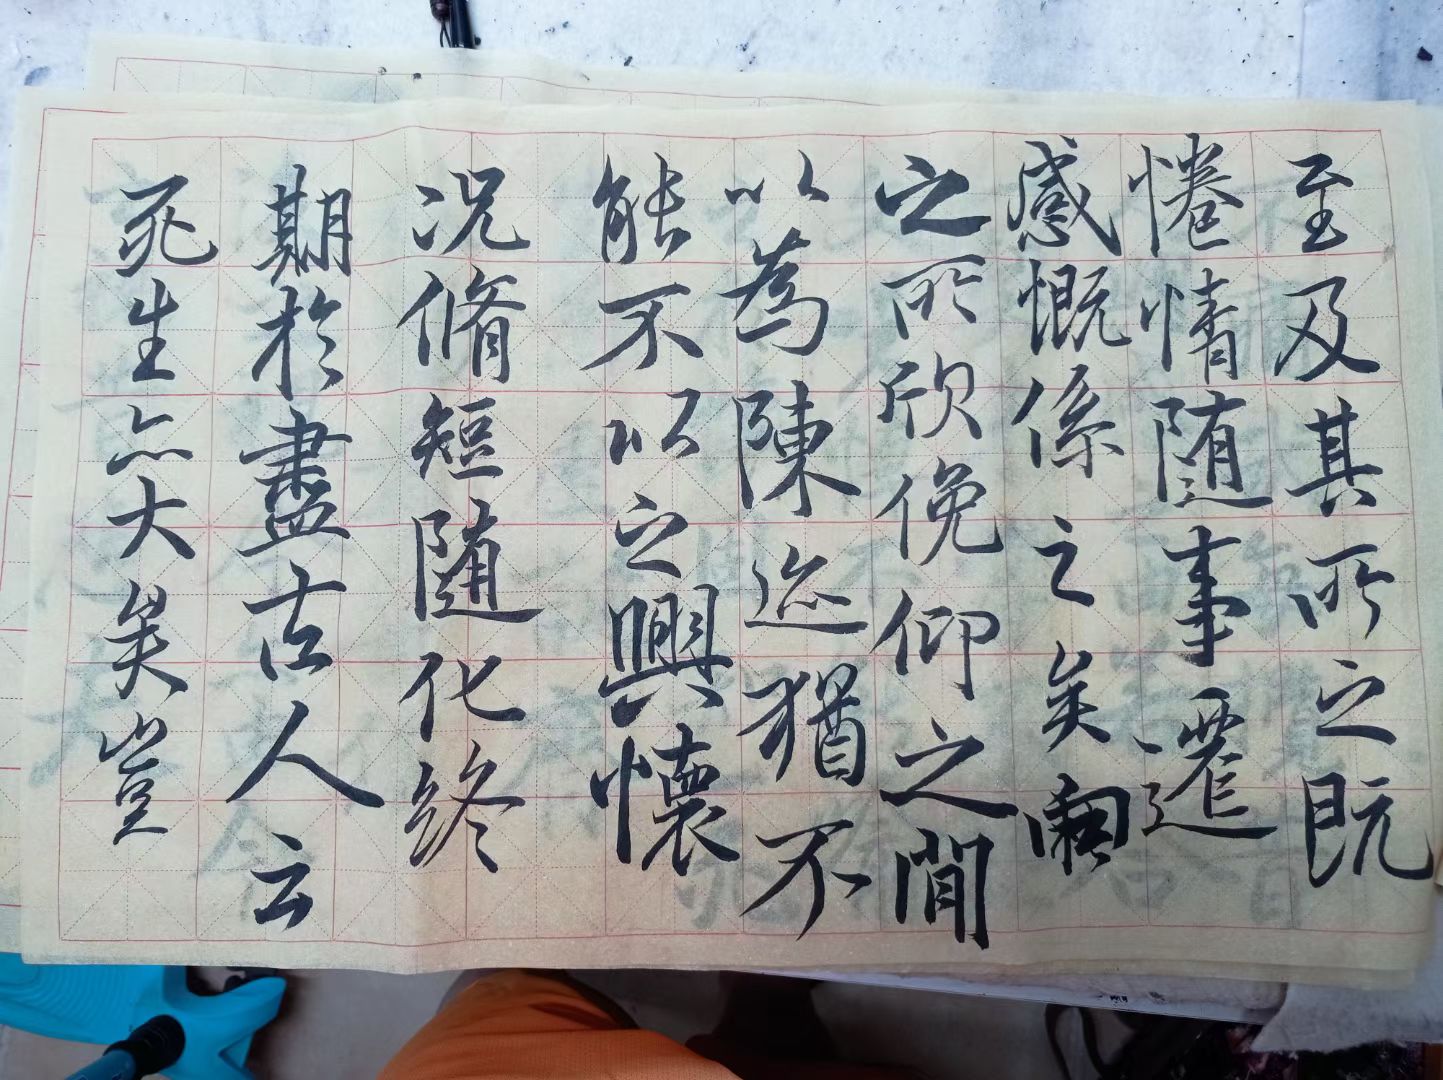 至及其所之既
惓情随事遷
感慨係之矣向
之所欣俛仰之間
以為陳迹猶不
能不以之興懷
况脩短随化終
期於盡古人云
死生亦大矣豈